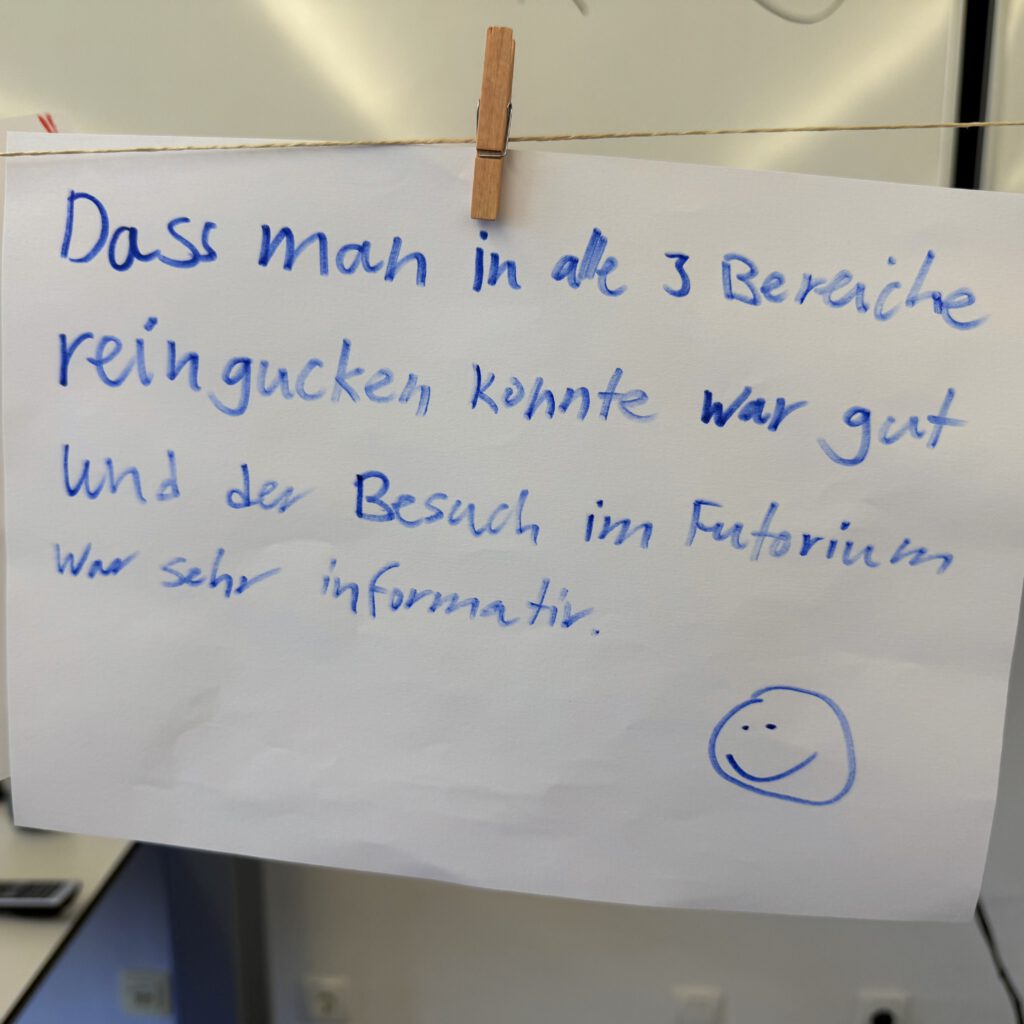 Dass man in alle 3 Bereiche
reingucken konnte war gut
und der Besuch im Futorium
war sehr informativ.